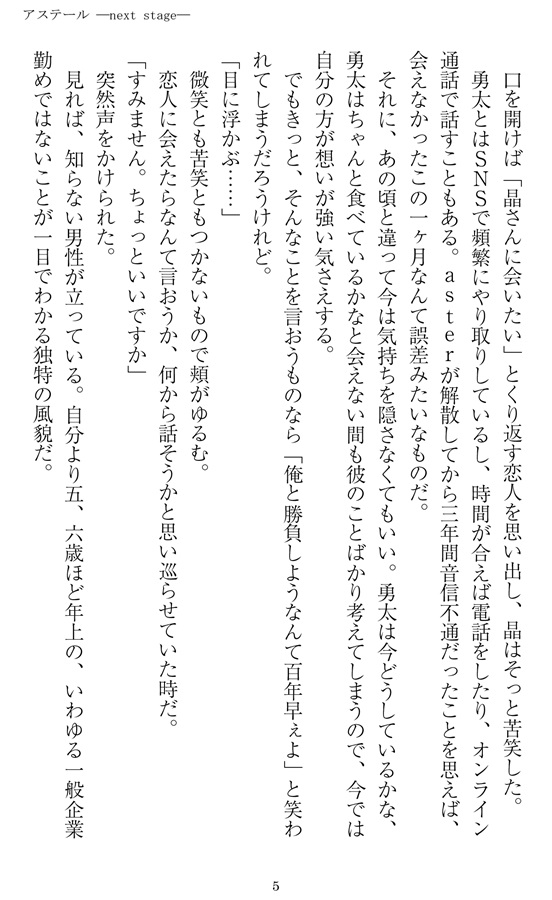 アステール ―next stage―
　口を開けば「晶さんに会いたい」とくり返す恋人を思い出し、晶はそっと苦笑した。
　勇太とはSNSで頻繁にやり取りしているし、時間が合えば電話をしたり、オンライン
通話で話すこともある。asterが解散してから三年間音信不通だったことを思えば、
会えなかったこの一ヶ月なんて誤差みたいなものだ。
　それに、あの頃と違って今は気持ちを隠さなくてもいい。勇太は今どうしているかな、
勇太はちゃんと食べているかなと会えない間も彼のことばかり考えてしまうので、今では
自分の方が想いが強い気さえする。
　でもきっと、そんなことを言おうものなら「俺と勝負しようなんて百年早ぇよ」と笑わ
れてしまうだろうけれど。
「目に浮かぶ……」
　微笑とも苦笑ともつかないもので頬がゆるむ。
　恋人に会えたらなんて言おうか、何から話そうかと思い巡らせていた時だ。
「すみません。ちょっといいですか」
　突然声をかけられた。
　見れば、知らない男性が立っている。自分より五、六歳ほど年上の、いわゆる一般企業
勤めではないことが一目でわかる独特の風貌だ。
5